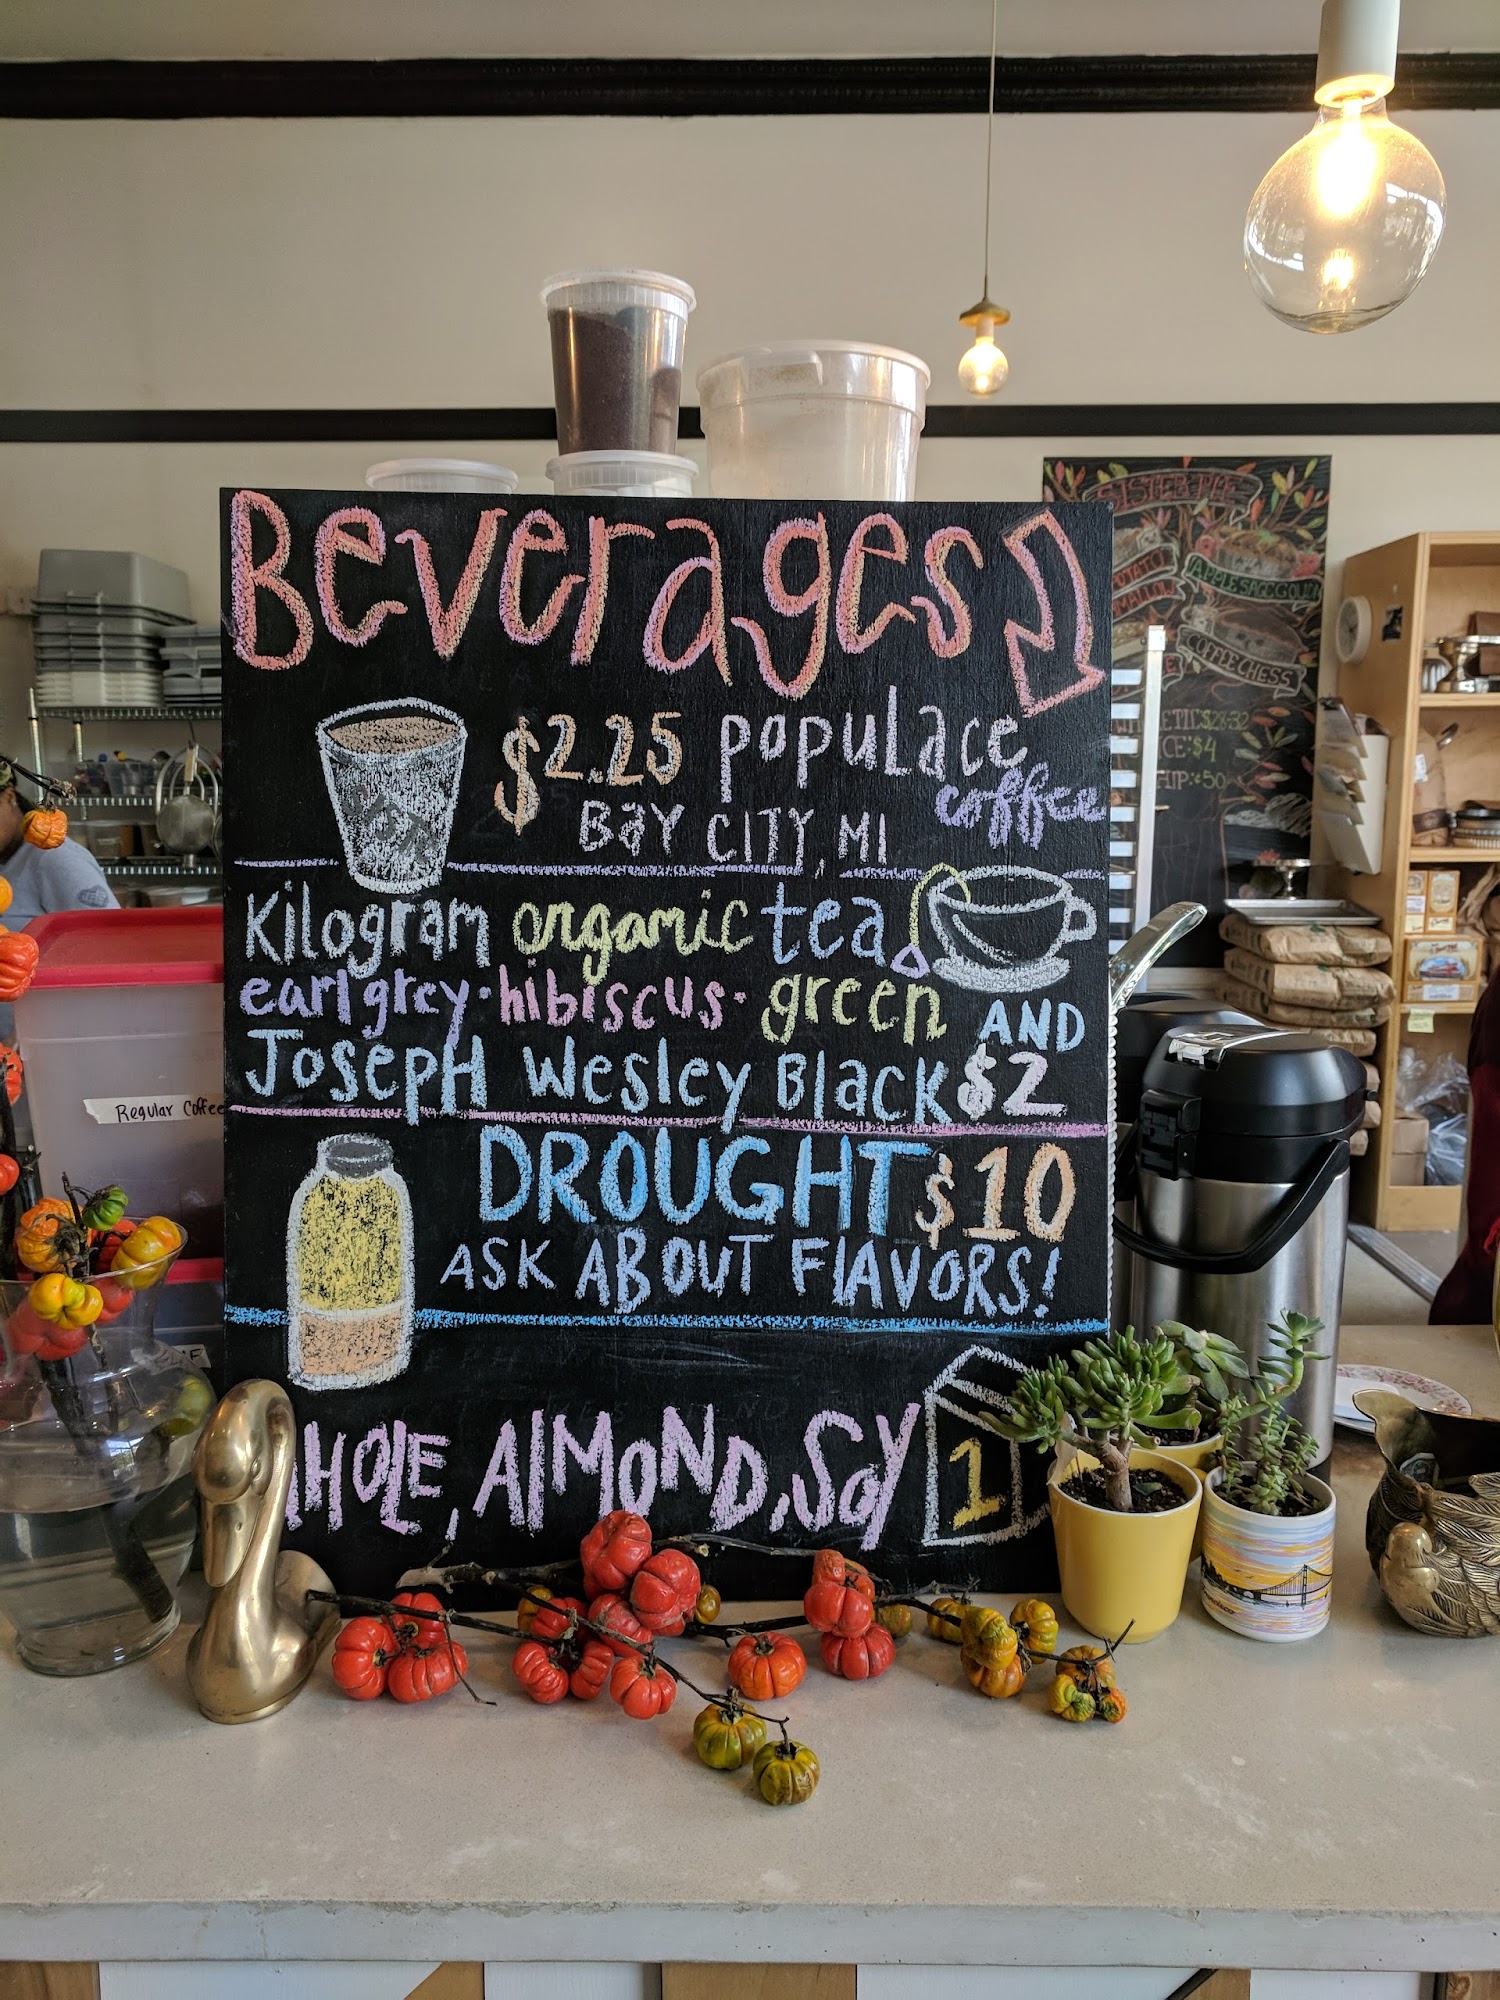 Beverages
$2.25 populace
coffee
BAY CITY, MI
Kilogram organic tea
earl grey · hibiscus · green
AND
Joseph Wesley Black $2
DROUGHT $10
ASK ABOUT FLAVORS!
HOLE, ALMOND, SOY
1
Regular Coffee
SISTER PIE
APPLE SAGE GOUDA
COFFEE CHESS
$28-32
$4